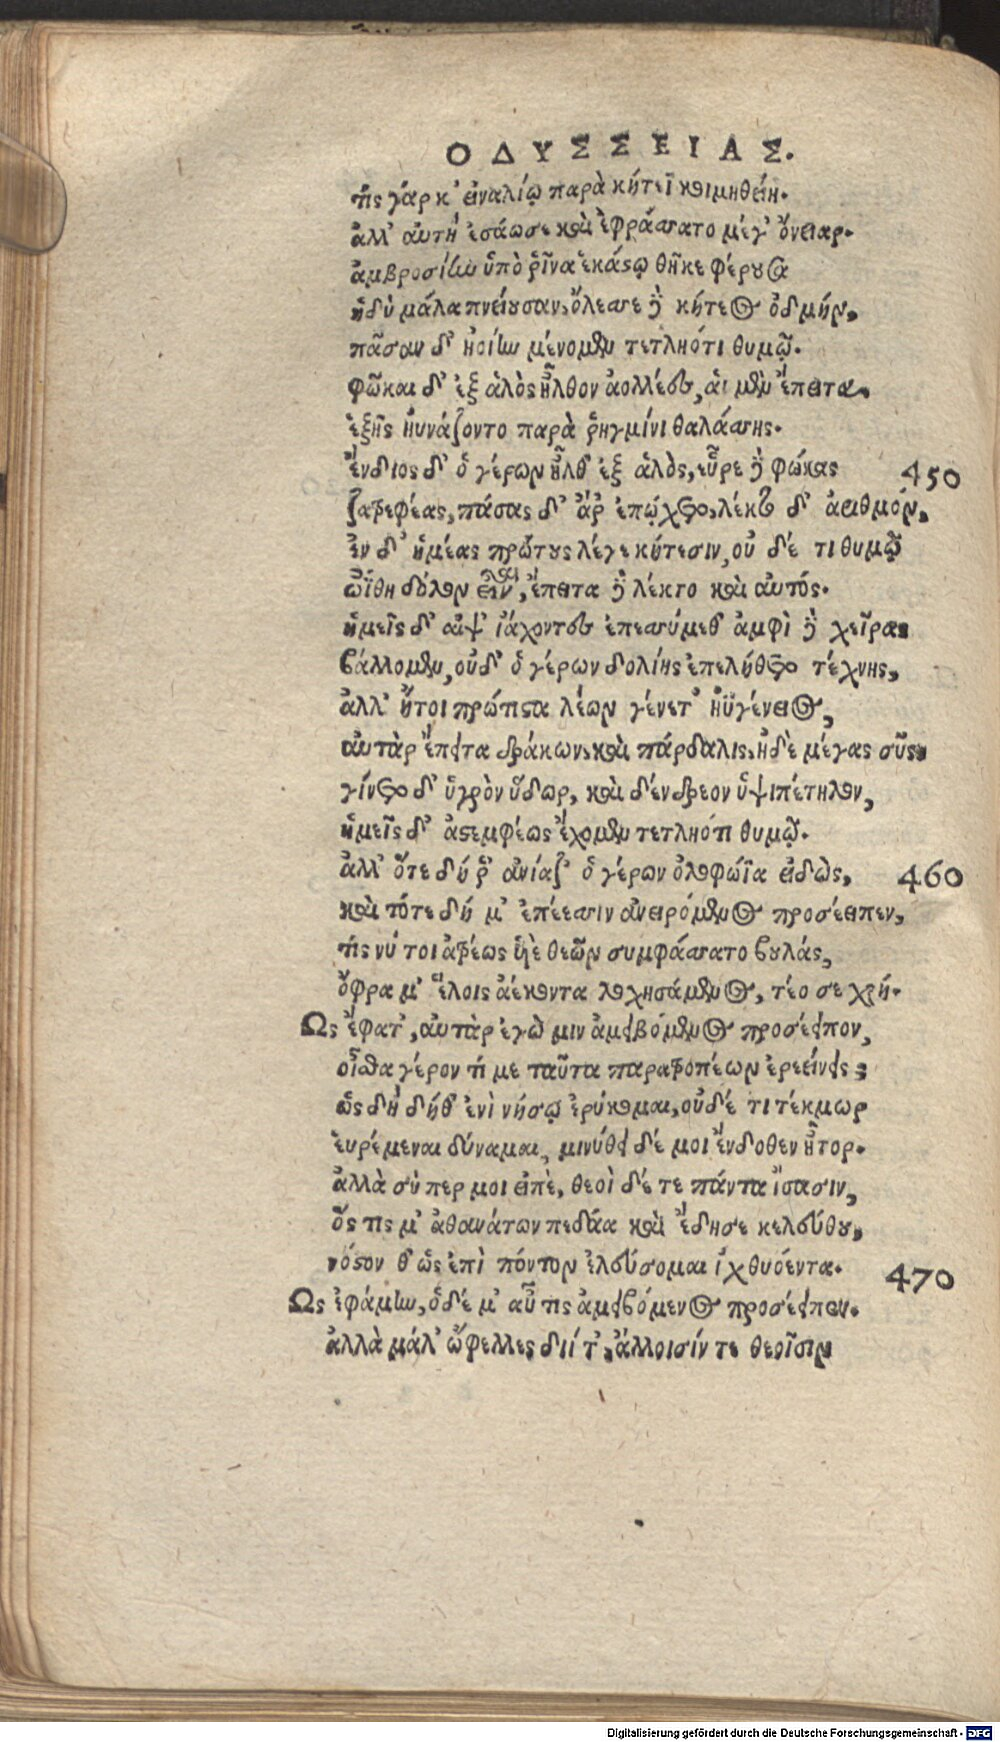 ΟΔΥΣΣΕΙΑΣ.
τίς γάρ κ' εἰναλίῳ παρὰ κήτεϊ κοιμηθείη.
ἀλλ' αὐτὴ ἐσάωσε καὶ ἐφράσσατο μέγ' ὄνειαρ.
ἀμβροσίην ὑπὸ ῥῖνα ἑκάστῳ θῆκε φέρουσα
ἡδὺ μάλα πνείουσαν, ὄλεσσε δὲ κήτεος ὀδμήν,
πᾶσαν δ' ἠοίην μένομεν τετληότι θυμῷ.
φῶκαι δ' ἐξ ἁλὸς ἦλθον ἀολλέες, αἱ μὲν ἔπειτα,
ἑξῆς ηὐνάζοντο παρὰ ῥηγμίνι θαλάσσης.
ἔνδιος δ' ὁ γέρων ἦλθ' ἐξ ἁλὸς, εὗρε δὲ φώκας 450
ζατρεφέας, πάσας δ' ἄρ' ἐπῴχετο, λέκτο δ' ἀριθμόν,
ἐν δ' ἡμέας πρώτους λέγε κήτεσιν, οὐ δέ τι θυμῷ
ὠΐσθη δόλον εἶναι, ἔπειτα δὲ λέκτο καὶ αὐτός.
ἡμεῖς δ' αἶψ' ἰάχοντες ἐπεσσύμεθ' ἀμφὶ δὲ χεῖρας
βάλλομεν, οὐδ' ὁ γέρων δολίης ἐπελήθετο τέχνης,
ἀλλ' ἤτοι πρώτιστα λέων γένετ' ἠϋγένειος,
αὐτὰρ ἔπειτα δράκων, καὶ πάρδαλις, ἠδὲ μέγας σῦς,
γίνετο δ' ὑγρὸν ὕδωρ, καὶ δένδρεον ὑψιπέτηλον,
ἡμεῖς δ' ἀστεμφέως ἔχομεν τετληότι θυμῷ.
ἀλλ' ὅτε δή ῥ' ἀνίαζ' ὁ γέρων ὀλοφώϊα εἰδὼς, 460
καὶ τότε δή μ' ἐπέεσσιν ἀνειρόμενος προσέειπεν,
τίς νύ τοι ἀτρέως ὑὲ θεῶν συμφράσσατο βουλάς,
ὄφρα μ' ἕλοις ἀέκοντα λοχησάμενος, τέο σε χρή.
Ως ἔφατ', αὐτὰρ ἐγὼ μιν ἀμειβόμενος προσέειπον,
οἶσθα γέρον τί με ταῦτα παρατροπέων ἐρεείνεις;
ὡς δὴ δήθ' ἐνὶ νήσῳ ἐρύκομαι, οὐδέ τι τέκμωρ
εὑρέμεναι δύναμαι, μινύθει δέ μοι ἔνδοθεν ἦτορ.
ἀλλὰ σύ περ μοι εἰπὲ, θεοὶ δέ τε πάντα ἴσασιν,
ὅς τις μ' ἀθανάτων πεδάα καὶ ἔδησε κελεύθου,
νόστον θ' ὡς ἐπὶ πόντον ἐλεύσομαι ἰχθυόεντα. 470
Ως ἐφάμην, ὁ δέ μ' αὖτις ἀμειβόμενος προσέειπεν.
ἀλλὰ μάλ' ὤφελλες διί τ', ἄλλοισίν τε θεοῖσιν
Digitalisierung gefördert durch die Deutsche Forschungsgemeinschaft - DFG